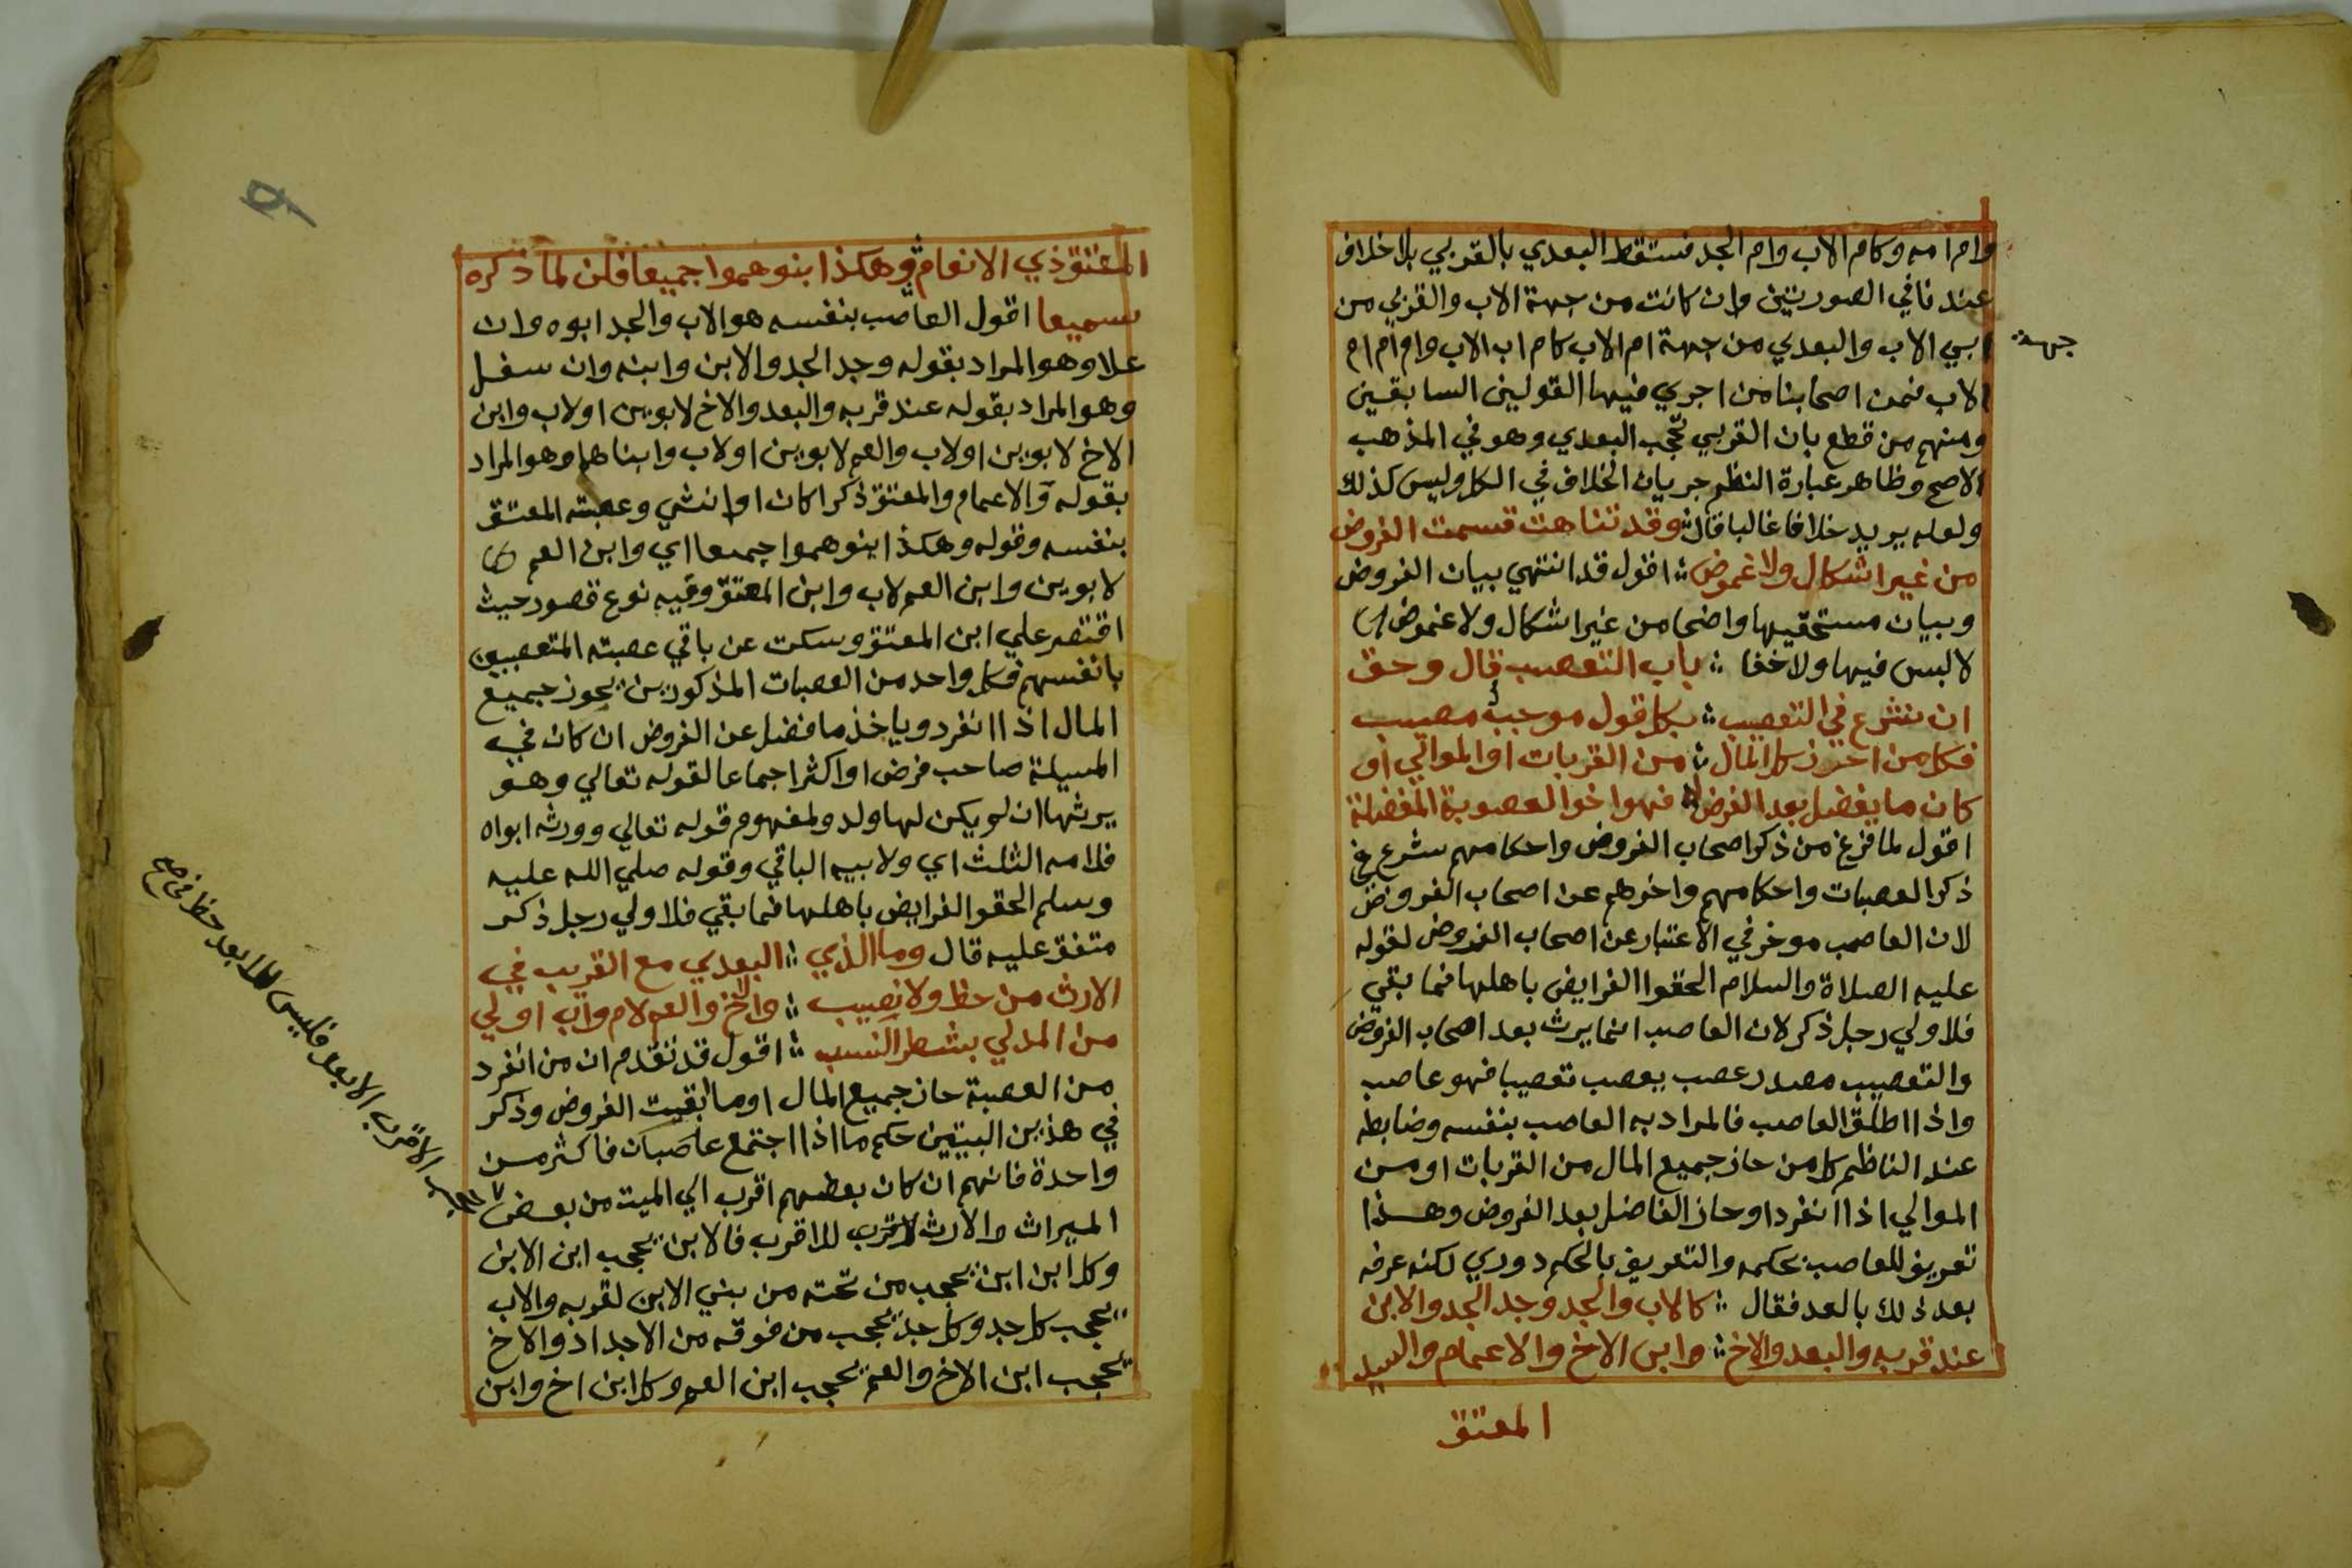 وام امه وكام الاب وام الجد فستقط البعدي بالقربي بلا خلاف
عندنا في الصورتين وان كانت من جهة الاب والقربي من
جهة
ابي الاب والبعدي من جهة ام الاب كام اب الاب وام ام ام
الاب فمن اصحابنا من اجري فيها القولين السابقين
ومنهم من قطع بان القربي تحجب البعدي وهو في المذهب
الاصح وظاهر عبارة النظم جريان الخلاف في الكل وليس كذلك
ولعله يريد خلافا غالبا قال وقد تناهت قسمت الفروض
من غير اشكال ولا غموض اقول قد انتهي بيان الفروض
وبيان مستحقيها واضحا من غير اشكال ولا غموض اي
لا لبس فيها ولا خفا باب التعصيب قال وحق
ان نشرع في التعصيب بكل قول موجب مصيب
فكل من احرز كل المال من القربات او الموالي او
كان ما يفضل بعد الفرض له فهو اخو العصوبة المفضلة
اقول لما فرغ من ذكر اصحاب الفروض واحكامهم شرع في
ذكر العصبات واحكامهم واخرهم عن اصحاب الفروض
لان العاصب موخر في الاعتبار عن اصحاب الفروض لقوله
عليه الصلاة والسلام الحقوا الفرايض باهلها فما بقي
فلاولي رجل ذكر لان العاصب انما يرث بعد اصحاب الفروض
والتعصيب مصدر عصب يعصب تعصيبا فهو عاصب
واذا اطلق العاصب فالمراد به العاصب بنفسه وضابطه
عند الناظم كل من حاز جميع المال من القربات او من
الموالي اذا انفرد او حاز الفاضل بعد الفروض وهذا
تعريف للعاصب بحكمه والتعريف بالحكم دوري لكنه عرفه
بعد ذلك بالعد فقال كالاب والجد وجد الجد والابن
عند قربه والبعد والاخ وابن الاخ والاعمام والسيد
المعتق
المعتق ذي الانعام وهكذا بنوهموا جميعا فكن لما ذكره
سميعا اقول العاصب بنفسه هو الاب والجد ابوه وان
علا وهو المراد بقوله وجد الجد والابن وابنه وان سفل
وهو المراد بقوله عند قربه والبعد والاخ لابوين اولاب وابن
الاخ لابوين اولاب والعم لابوين اولاب وابناهما وهو المراد
بقوله والاعمام والمعتق ذكرا كان او انثي وعصبته المعتق
بنفسه وقوله وهكذا بنوهموا جميعا اي وابن العم
لابوين وابن العم لاب وابن المعتق وفيه نوع قصور حيث
اقتصر علي ابن المعتق وسكت عن باقي عصبته المتعصبين
بانفسهم فكل واحد من العصبات المذكورين يحوز جميع
المال اذا انفرد وياخذ ما فضل عن الفروض ان كان في
المسيلة صاحب فرض او اكثر اجماعا لقوله تعالي وهو
يرثها ان لو يكن لها ولد ولمفهوم قوله تعالي وورثه ابواه
فلامه الثلث اي ولابيه الباقي وقوله صلي الله عليه
وسلم الحقوا الفرايض باهلها فما بقي فلاولي رجل ذكر
متفق عليه قال وما الذي البعدي مع القريب في
الارث من حظ ولا نصيب والاخ والعم لام واب اولي
من المدلي بشطر النسب اقول قد تقدم ان من انفرد
من العصبة حاز جميع المال او ما ابقيت الفروض وذكر
في هذين البيتين حكم ما اذا اجتمع عاصبان فاكثر من
واحدة فانهم ان كان بعضهم اقرب الي الميت من بعض
الاقرب الابعد فليس للابعد حظ في
الميراث والارث للاقرب فالابن يحجب ابن الابن
وكل ابن ابن يحجب من تحته من بني الابن لقربه والاب
يحجب كل جد وكل جد يحجب من فوقه من الاجداد والاخ
يحجب ابن الاخ والعم يحجب ابن العم وكل ابن اخ وابن